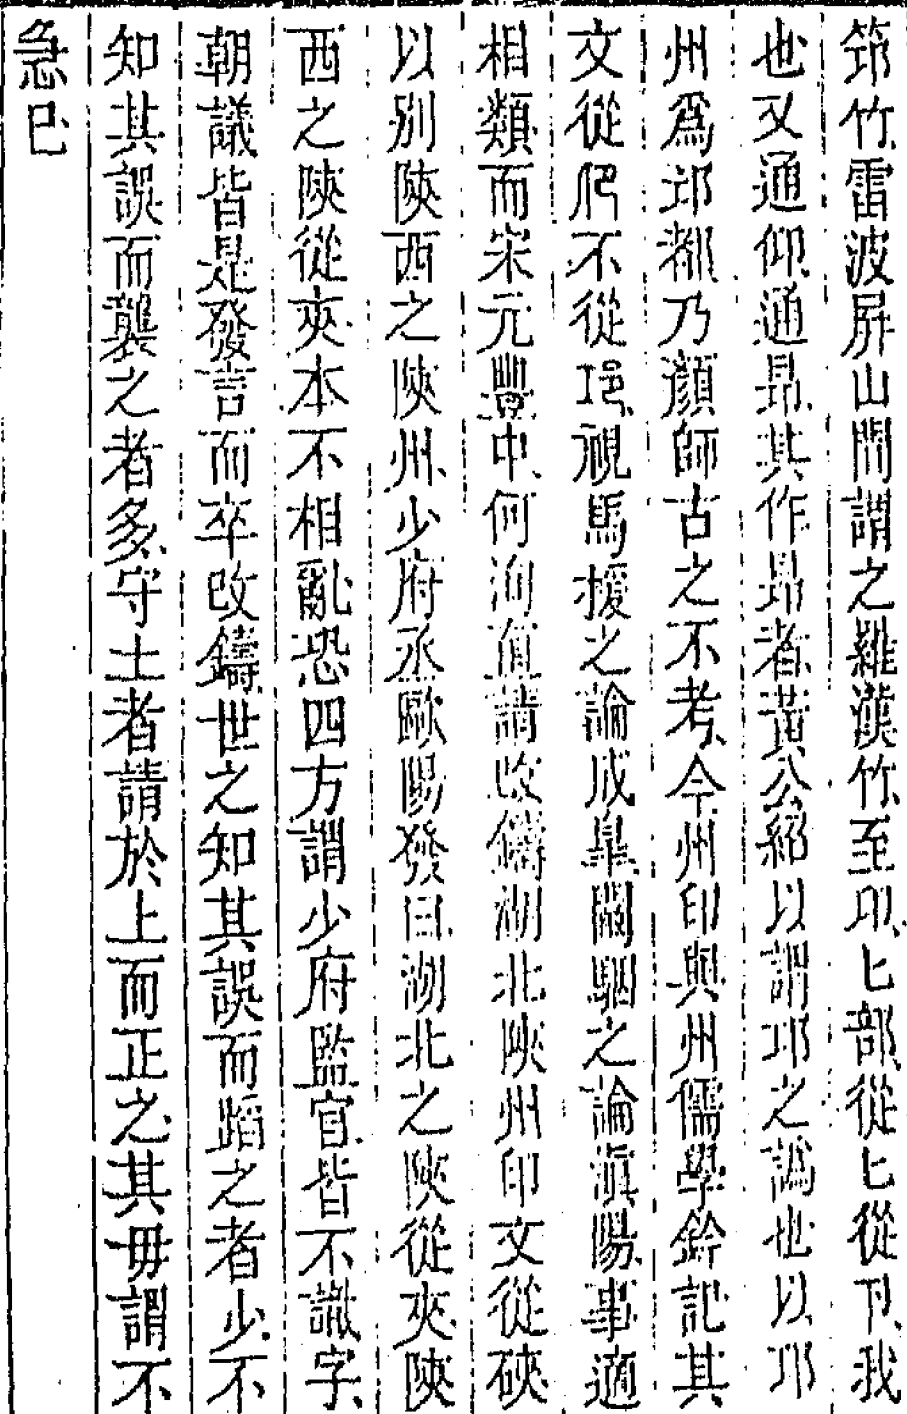 筇竹雷波屏山間謂之羅漢竹至卬匕部從匕從卪我
也又通仰通昻其作昻者黃公紹以謂邛之譌也以邛
州爲邛都乃顏師古之不考今州印與州儒學鈐記其
文從卮不從邛視馬援之論成臯闞駰之論滇陽事適
相類而宋元豐中何洵直請改鑄湖北陜州印文從硤
以別陝西之陝州少府丞歐陽發曰湖北之陜從夾陝
西之陝從㚒本不相亂恐四方謂少府監官皆不識字
朝議皆是發言而卒改鑄世之知其誤而蹈之者少不
知其誤而襲之者多守土者請於上而正之其毋謂不
急已